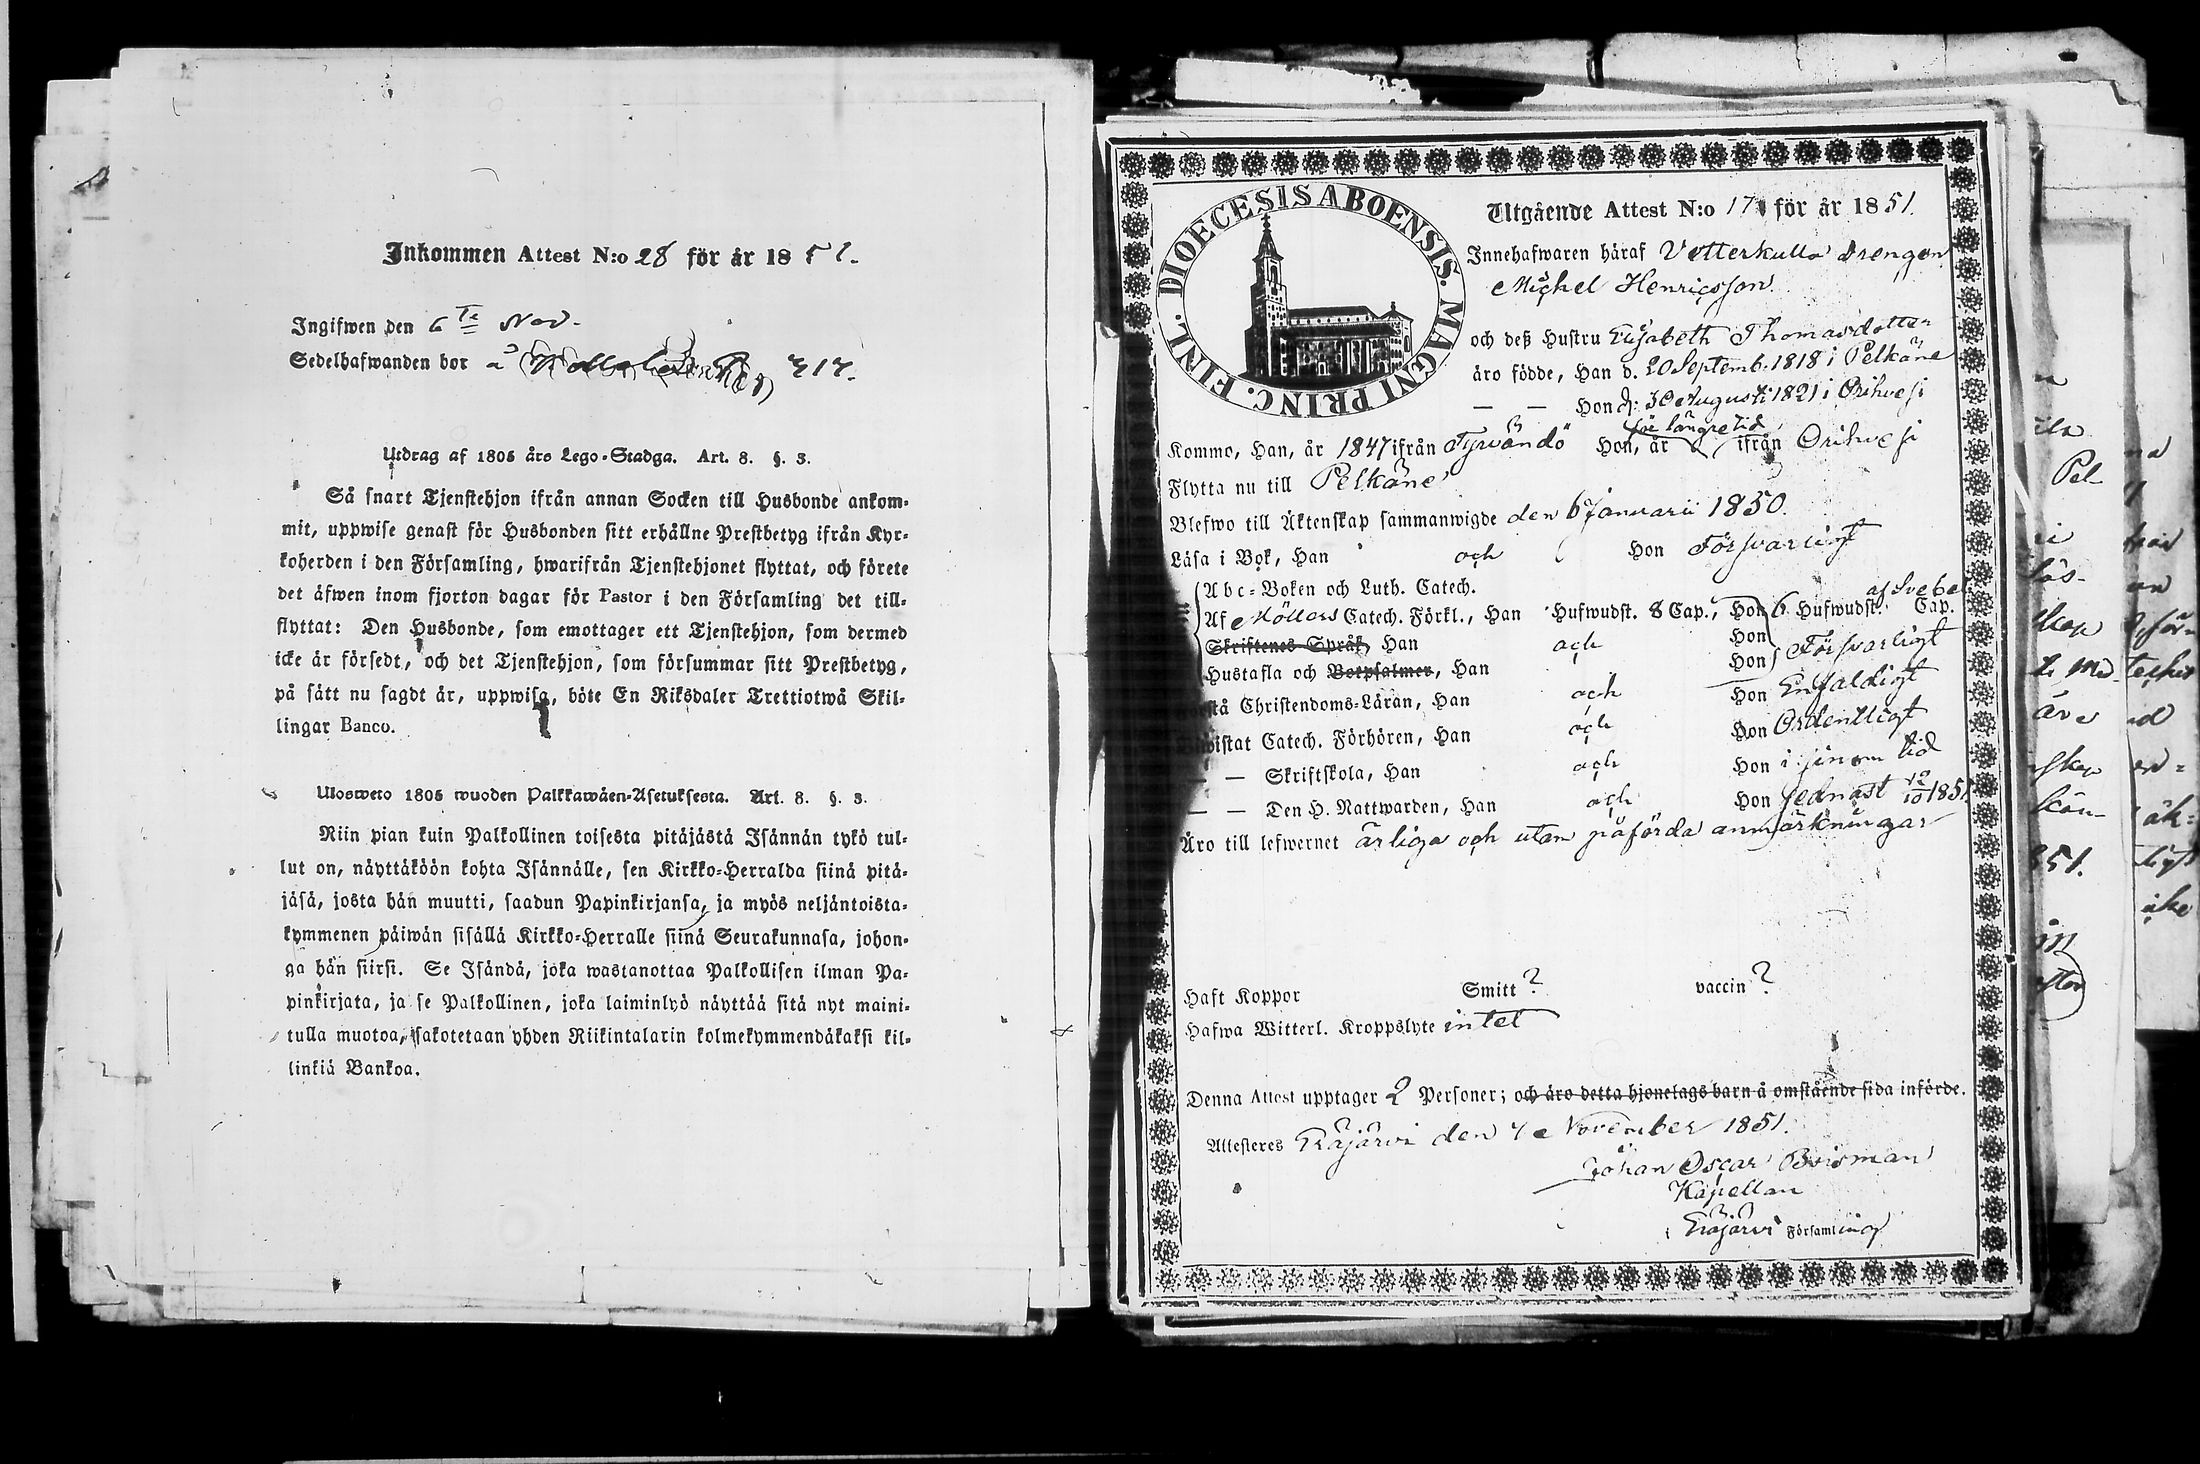 Inkommen Attest N:o 28 för år 1851.
Ingifwen den 6te Nov.
Sedelhafwanden bor å
Utdrag af 1805 års Lego-Stadga. Art. 8. §. 3.
Så snart Tjenstehjon ifrån annan Socken till Husbonde ankom-
mit, uppwise genast för Husbonden sitt erhållne Prestbetyg ifrån Kyr-
koherden i den Församling, hwarifrån Tjenstehjonet flyttat, och förete
det äfwen inom fjorton dagar för Pastor i den Församling det till-
flyttat: Den Husbonde, som emottager ett Tjenstehjon, som dermed
icke är försedt, och det Tjenstehjon, som försummar sitt Prestbetyg,
på sätt nu sagdt är, uppwisa, böte En Riksdaler Trettiotwå Skil-
lingar Banco.
Ulosweto 1805 wuoden Palkkawäen-Asetuksesta. Art. 8. §. 3.
Niin pian kuin Palkollinen toisesta pitäjästä Isännän tykö tul-
lut on, näyttäköön kohta Isännälle, sen Kirkko-Herralda siinä pitä-
jäsä, josta hän muutti, saadun Papinkirjansa, ja myös neljäntoista-
kymmenen päiwän sisällä Kirkko-Herralle siinä Seurakunnasa, johon-
ga hän siirsi. Se Isändä, joka wastanottaa Palkollisen ilman Pa-
pinkirjata, ja se Palkollinen, joka laiminlyö näyttää sitä nyt maini-
tulla muotoa, sakotetaan yhden Riikintalarin kolmekymmendäkaksi kil-
linkiä Bankoa.
DIOECESIS ABOENSIS. MAGNI PRINC. FINL.
Utgående Attest N:o 17 för år 1851.
Innehafwaren häraf Vetterkulla drengen
Michel Henricsson
och deß Hustru Elisabeth Thomasdotter
äro födde, Han d. 20 Septemb. 1818 i Pelkäne
— — Hon d: 30 Augusti 1821 i Orihvesi
för längre tid
Kommo, Han, år 1847 ifrån Tyrvändö Hon, år ifrån Orihvesi
Flytta nu till Pelkäne
Blefwo till Äktenskap sammanwigde den 6 Januarii 1850.
Läsa i Bok, Han och Hon Försvarligt
Abc-Boken och Luth. Catech.
af Svebel.
Af Möllers Catech. Förkl., Han Hufwudst. 8 Cap., Hon 6 Hufwudst. Cap.
Skriftenes Språk, Han och Hon Försvarligt
Hustafla och Botpsalmer, Han Hon
Christendoms-Läran, Han och Hon Enfaldigt
Catech. Förhören, Han och Hon Ordentligt
— Skriftskola, Han och Hon i sinom tid
— — Den H. Nattwarden, Han och Hon sednast 12/10 1851.
Äro till lefwernet ärliga och utan påförda anmärkningar
Haft Koppor Smitt ? vaccin ?
Hafwa Witterl. Kroppslyte intet
Denna Attest upptager 2 Personer; och äro detta hjonelags barn å omstående sida införde.
Attesteres Eräjärvi den 4 November 1851.
Johan Oscar Brisman
Kapellan
i Eräjärvi Församling